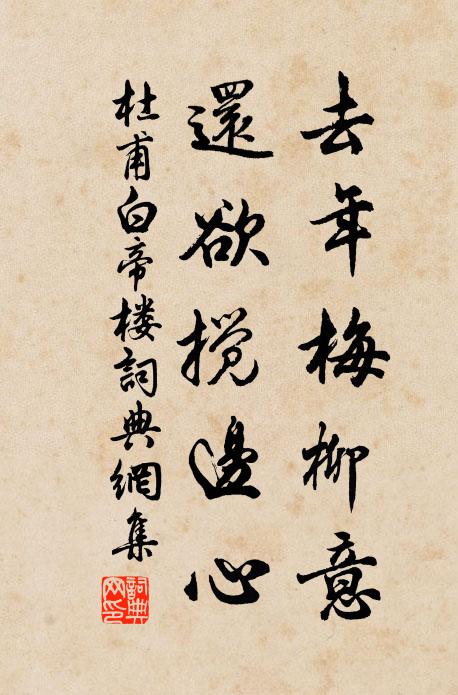 去年梅柳意
還欲攪邊心
杜甫白帝楼詞典網集
詞典網印